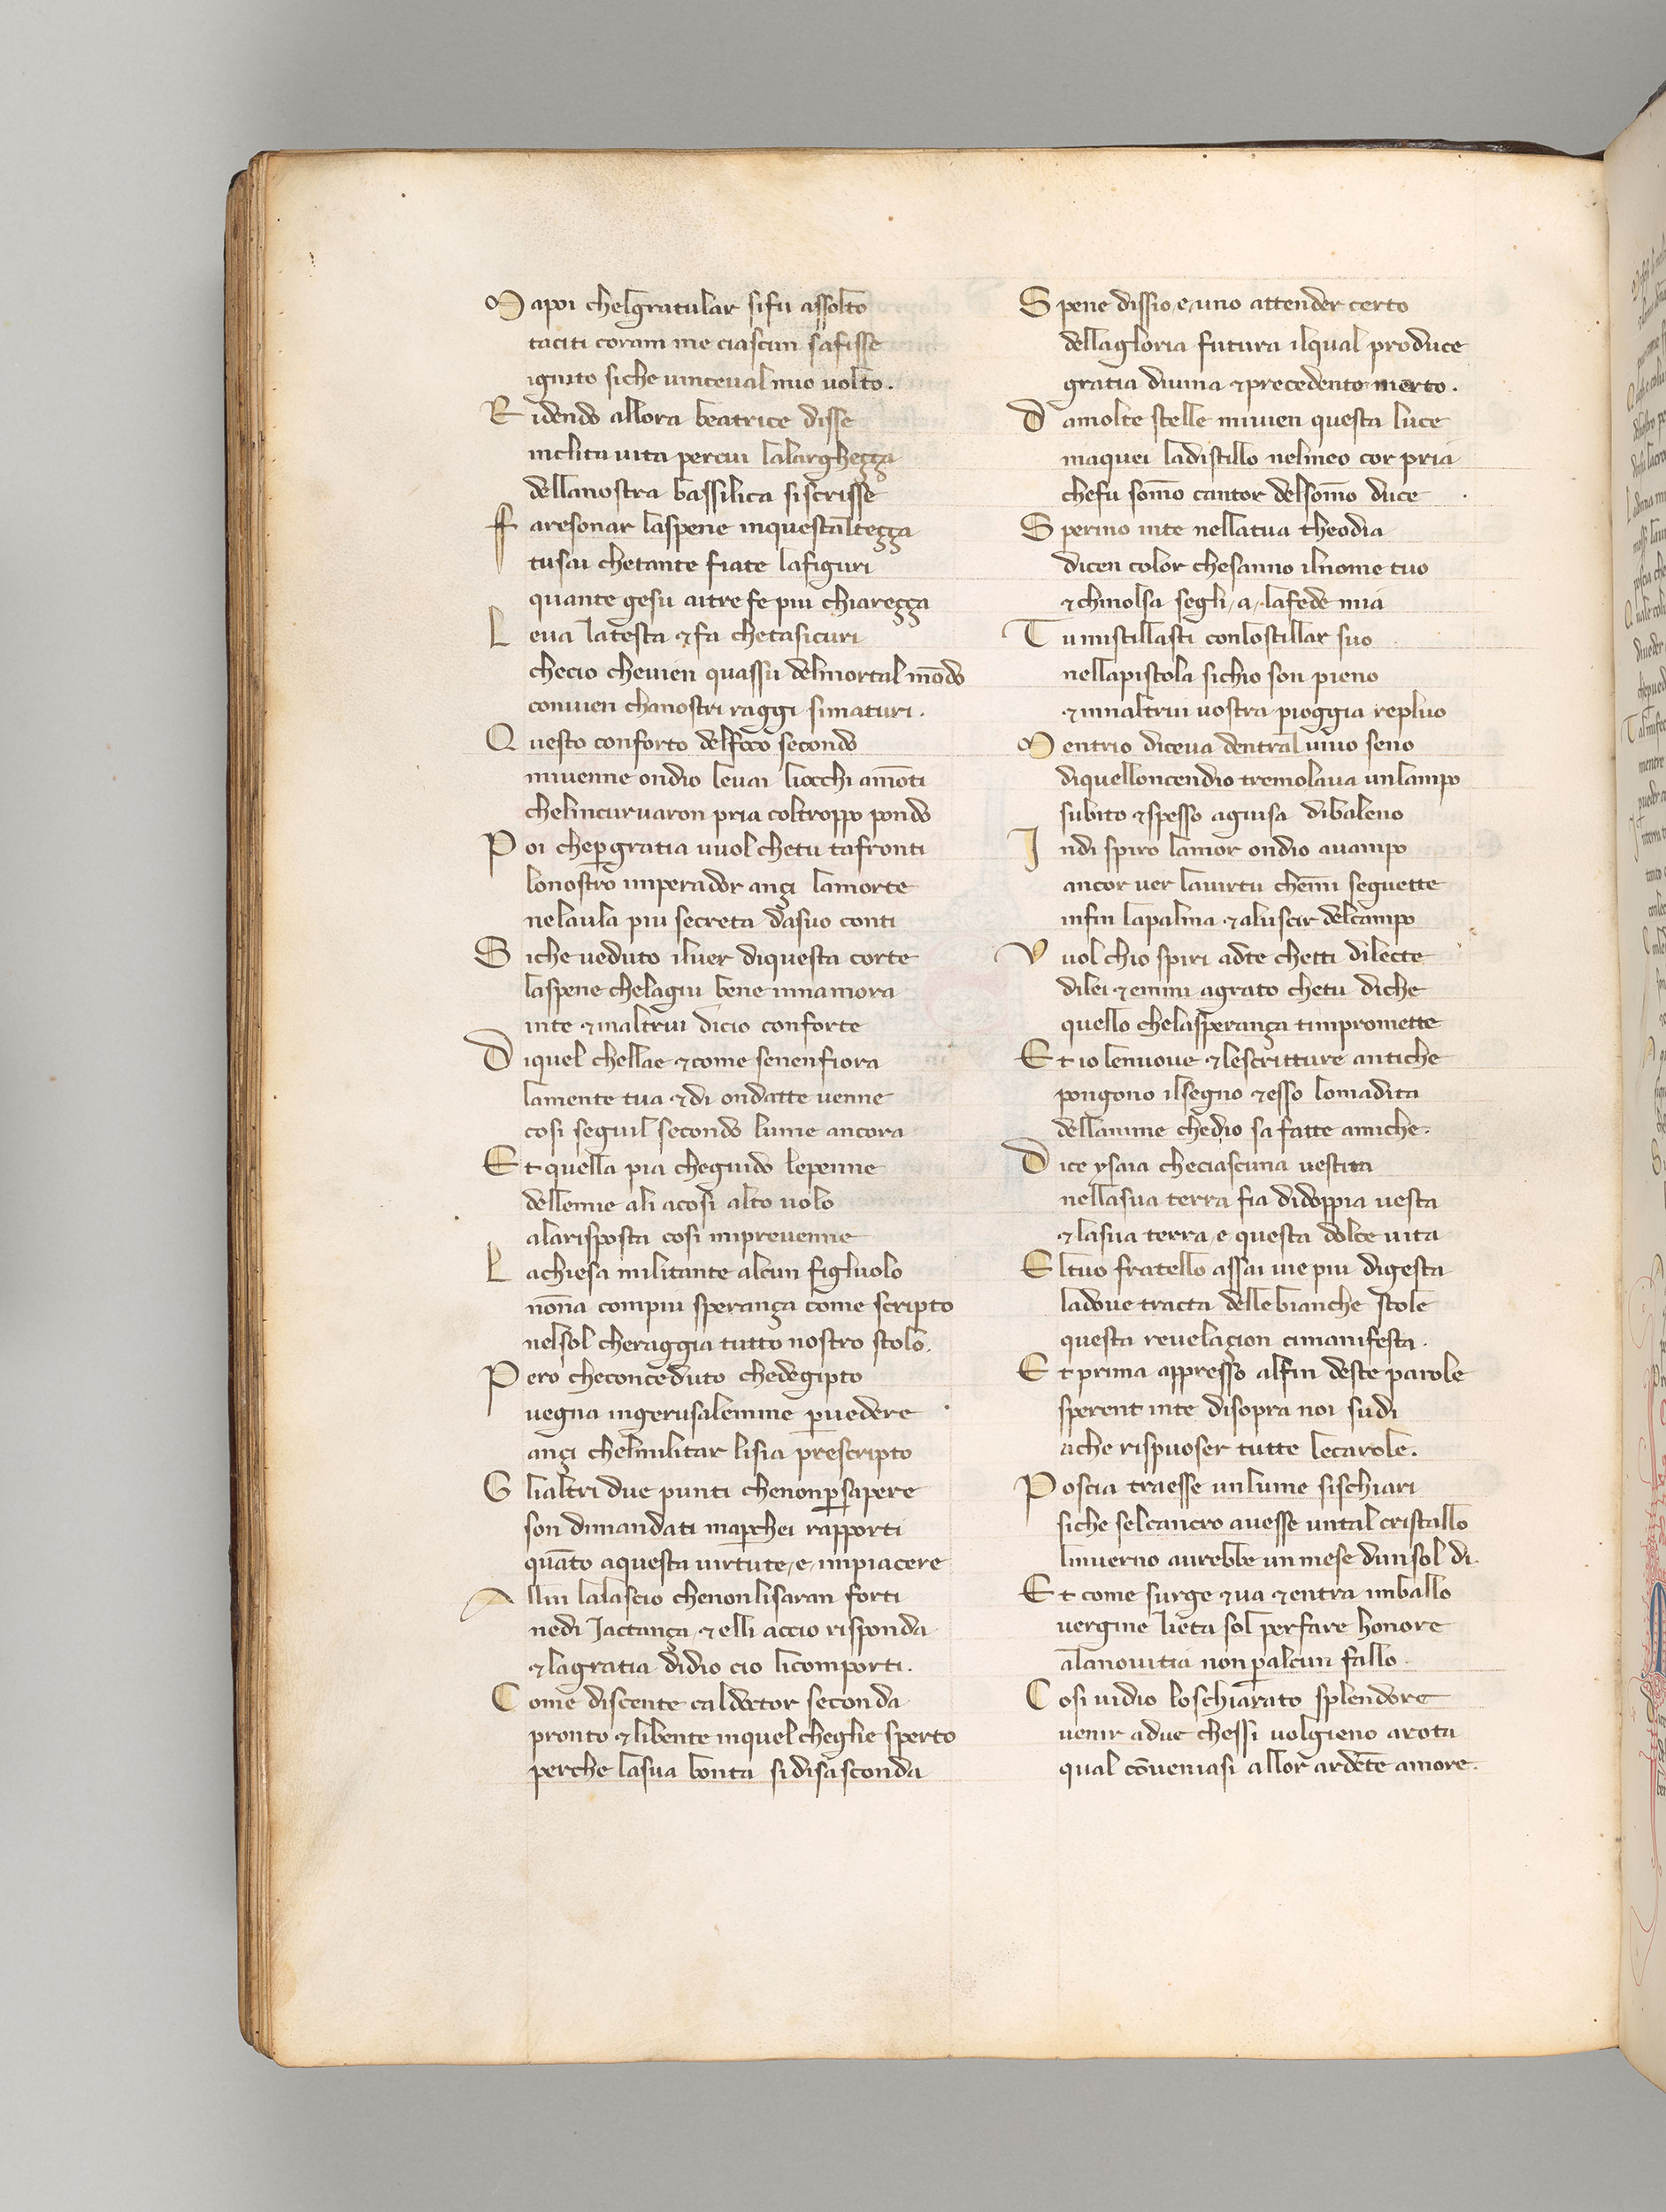 M apoi chelgratular sifu assolto
taciti coram me ciascun safisse
ignito siche vinceval mio volto.
R idendo allora beatrice disse
inclita vita percui lalargheçça
dellanostra bassilica siscrisse
F aresonar laspene inquestalteçça
tusai chetante fiate lafiguri
quante gesu aitre fe piu chiareçça
L eua latesta ⁊ fa chetasicuri
checio chevien quassu delmortal mōdo
convien chanostri raggi simaturi.
Q uesto conforto delfoco secondo
mivenne ondio levai liocchi amōti
chelincurvaron pria coltroppo pondo
P oi cheꝑ gratia vuol chetu tafronti
lonostro imperador ançi lamorte
nelaula piu secreta dasuo conti
S iche veduto ilver diquesta corte
laspene chelagiu bene innamora
inte ⁊ inaltrui dicio conforte
D iquel chellae ⁊ come senenfiora
lamente tua ⁊ di ondatte venne
cosi seguil secondo lume ancora
E t quella pia cheguido lepenne
dellemie ali acosi alto volo
alarisposta cosi imprevenne
L achiesa militante alcun figliuolo
nōna compiu sperança come scripto
nelsol cheraggia tutto nostro stolo.
P ero checonceduto chedegipto
vegna ingerusalemme ꝑvedere
ançi chelmilitar lisia prescripto
G lialtri due punti chenonꝑsapere
son dimandati maꝑchei rapporti
quāto aquesta virtute, e, impiacere
A llui lalascio chenonlisaran forti
nedi Jactança, ⁊ elli accio risponda
⁊ lagratia didio cio licomporti.
C ome discente caldoctor seconda
pronto ⁊ libente inquel cheglie sperto
perche lasua bonta sidisasconda
S pene dissio, e, uno attender certo
dellagloria futura ilqual produce
gratia divina ⁊ precedento merto.
D amolte stelle mivien questa luce
maquei ladistillo nelmeo cor pria
chefu som̄o cantor delsom̄o duce
S perino inte nellatua theodia
dicen color chesanno ilnome tuo
⁊ chinolsa segli, a, lafede mia
T umistillasti conlostillar suo
nellapistola sichio son pieno
⁊ innaltrui vostra pioggia repluo
M entrio diceva dentral vivo seno
diquelloncendio tremolava unlampo
subito ⁊ spesso aguisa dibaleno
I ndi spiro lamor ondio avampo
ancor ver lavirtu chem̄i seguette
infin lapalma ⁊ aluscir delcampo
V uol chio spiri adte chetti dilecte
dilei ⁊ emmi agrato chetu diche
quello chelasperança timpromette
E t io lenuove ⁊ lescritture antiche
pongono ilsegno ⁊ esso lomadita
dellanime chedio sa fatte amiche.
D ice ysaia checiascuna vestita
nellasua terra fia didoppia vesta
⁊ lasua terra, e questa dolce vita
E ltuo fratello assai vie piu digesta
ladove tracta delle bianche stole
questa revelaçion cimanifesta.
E t prima appresso alfin deste parole
sperent inte disopra noi sudi
ache rispuoser tutte lecarole.
P oscia traesse unlume sischiari
siche selcancro avesse untal cristallo
linverno avrebbe unmese dunsol di.
E t come surge ⁊ va ⁊ entra imballo
vergine lieta sol perfare honore
alanovitia non ꝑalcun fallo.
C osi vidio loschiarato splendore
venir adue chessi volgieno arota
qual cōveniasi allor ardēte amore.